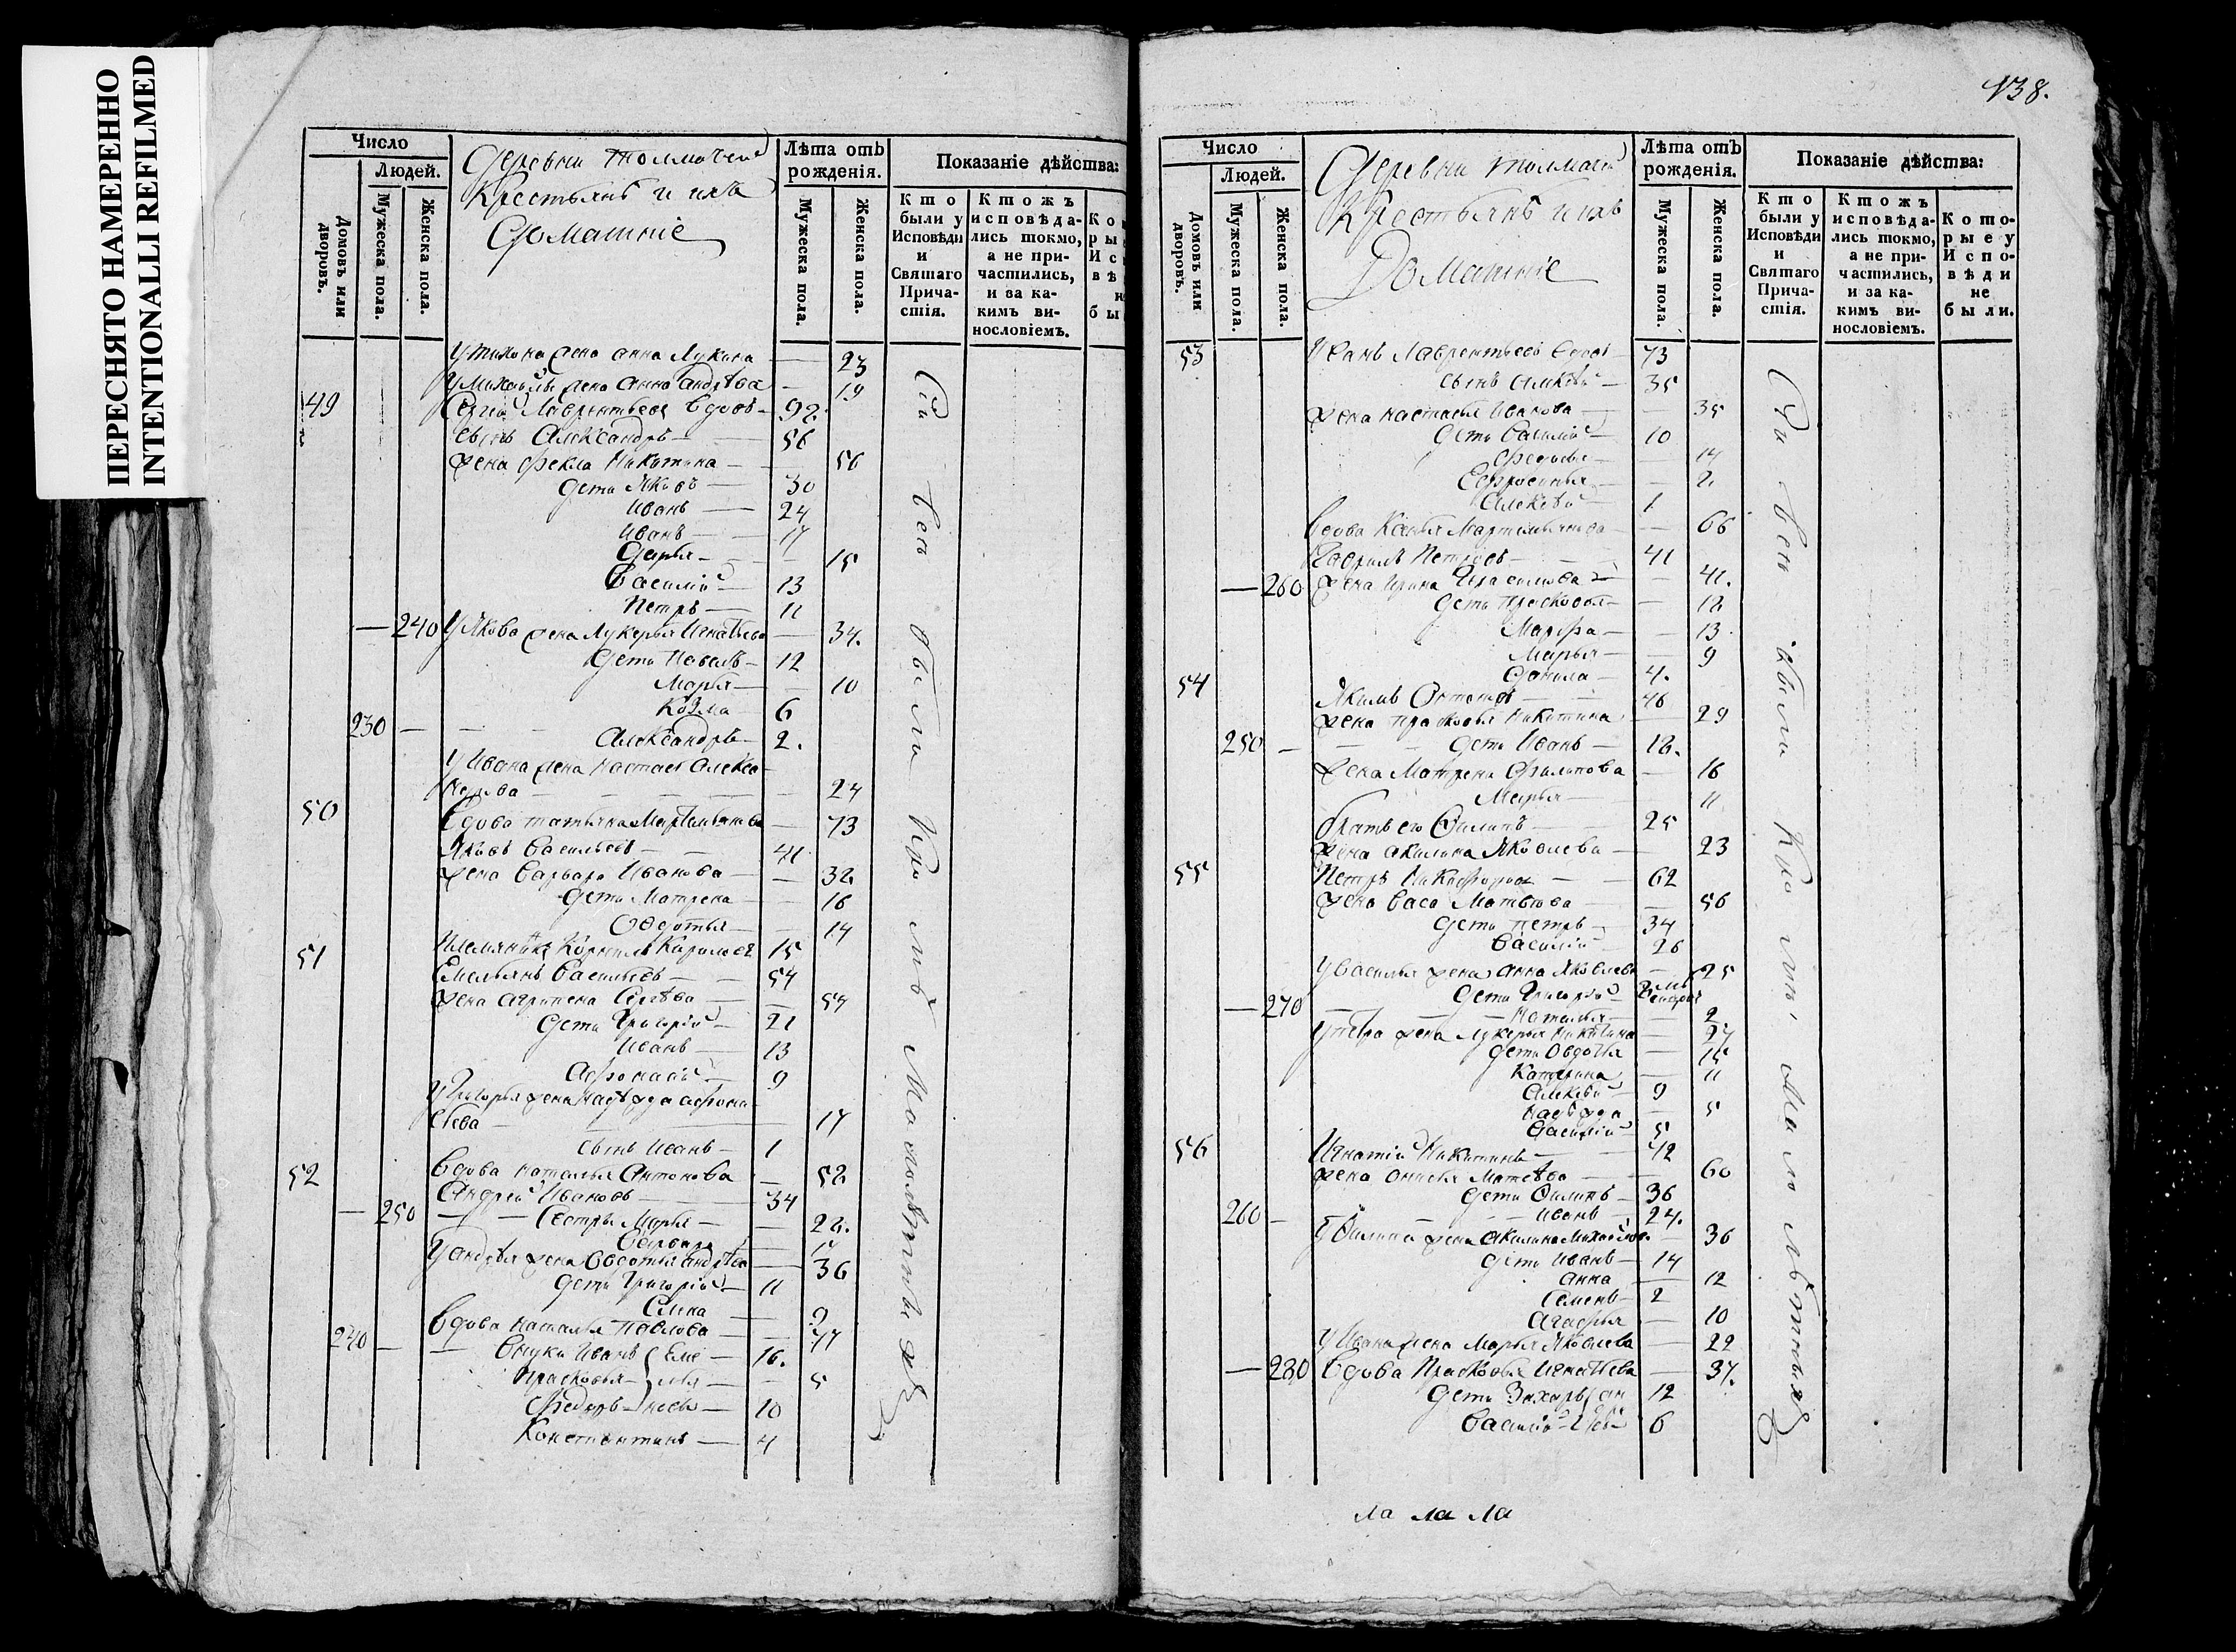 ПЕРЕСНЯТО НАМЕРЕННО
INTENTIONALLI REFILMED
Число
Людей.
Домовъ или дворовъ.
Мужеска пола.
Женска пола.
Деревни
Крестьянъ и ихъ
Домашніе
Лѣта отъ рожденія.
Мужеска пола.
Женска пола.
Показаніе дѣйства:
Кто были у Исповѣди и Святаго Причастія.
Ктожъ исповѣдались токмо, а не причастились, и за какимъ винословіемъ.
У Тихона жена Анна Лукина — 23
У Михайлы жена Анна Андрѣева — 19
49 Сергій Лаврентьевъ вдовъ — 92
сынъ Александръ — 56
жена Фекла Никитина — 56
дети Яковъ — 30
Иванъ — 24
Иванъ — 17
Дарья — 15
Василій — 13
Петръ — 11
— 240 У Якова жена Лукерья Игнатьева — 34.
дети Павелъ — 12
Марья — 10
Козма 6
230 — Александръ — 2.
У Ивана жена Настасья 
— 24
50 Вдова Татьяна — 73
Яковъ Васильевъ — 41
жена Варвара Иванова — 32
дети Матрена — 16
Овдотья — 14
51 Племянникъ Корнилъ 15
Емельянъ Васильевъ — 54
жена Агрипена Сергѣева — 54
дети Григорій — 21
Иванъ — 13
Афонасій — 9
У Григорья жена Надежда Афона
сьева — 17
сынъ Иванъ — 1
52 Вдова Наталья Антонова — 52
Андрей Ивановъ — 34
— 250 — Сестры Марья — 22.
Варвара — 17
У Андрея жена Овдотья Андрѣева — 36
дети Григорій — 11
— 9
Вдова Наталья Павлова — 77
240 — Внуки Иванъ Еме — 16.
Прасковья — лья — 5
Федоръ — новы — 10
Константинъ — 4
Сіи всѣ были кромѣ Малолѣтныхъ
138.
Число
Людей.
Домовъ или дворовъ.
Мужеска пола.
Женска пола.
Деревни
Крестьянъ и ихъ
Домашніе
Лѣта отъ рожденія.
Мужеска пола.
Женска пола.
Показаніе дѣйства:
Кто были у Исповѣди и Святаго Причастія.
Ктожъ исповѣдались токмо, а не причастились, и за какимъ винословіемъ.
Которые у Исповѣди не были.
53 Иванъ Лаврентьевъ вдовъ — 73
сынъ Алексѣй — 35
жена Настасья Иванова — 35
дети Василій — 10
Федосья — 14
Ефросинья — 2
Алексѣй — 1
Вдова Ксенья — 66
Гаврилъ Петровъ — 41
— 260 жена Ирина — 41.
дети Прасковья — 18
Марфа — 13
Марья — 9
Данила — 4.
54 Якимъ Антоновъ — 46
жена Прасковья Никитина — 29
250 — дети Иванъ — 18.
жена Матрена Филипова — 16
Марья — 11
братъ его Филипъ — 25
жена Акилина Яковлева — 23
55 Петръ Никифоровъ — 62
жена Васа Матвѣева — 56
дети Петръ — 34
Василій — 26
У Василья жена Анна Яковлева — 25
— 270 дети Григорій —
Наталья — 2
У Петра жена Лукерья Никитина — 27
дети Овдотья — 15
Катерина — 11
Алексѣй — 9
Надежда — 5
Василій — 5
56 Игнатій Никитинъ — 42
жена Онисья Матвѣева — 60
дети Филипъ — 36
260 — Иванъ — 24.
У Филипа жена Акилина Михайлова — 36
дети Иванъ — 14
Анна — 12
Семенъ — 2
Агафья — 10
У Ивана жена Марья Яковлева — 22
— 280 Вдова Прасковья Игнатьева — 37.
дети Захаръ 12
Василій 6
Сіи всѣ были кромѣ Малолѣтныхъ
ла ла ла